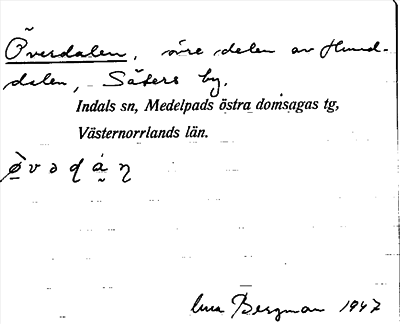 Överdalen, övre delen av Hund-
dalen, Säters by.
Indals sn, Medelpads östra domsagas tg,
Västernorrlands län.
Bergman 1947